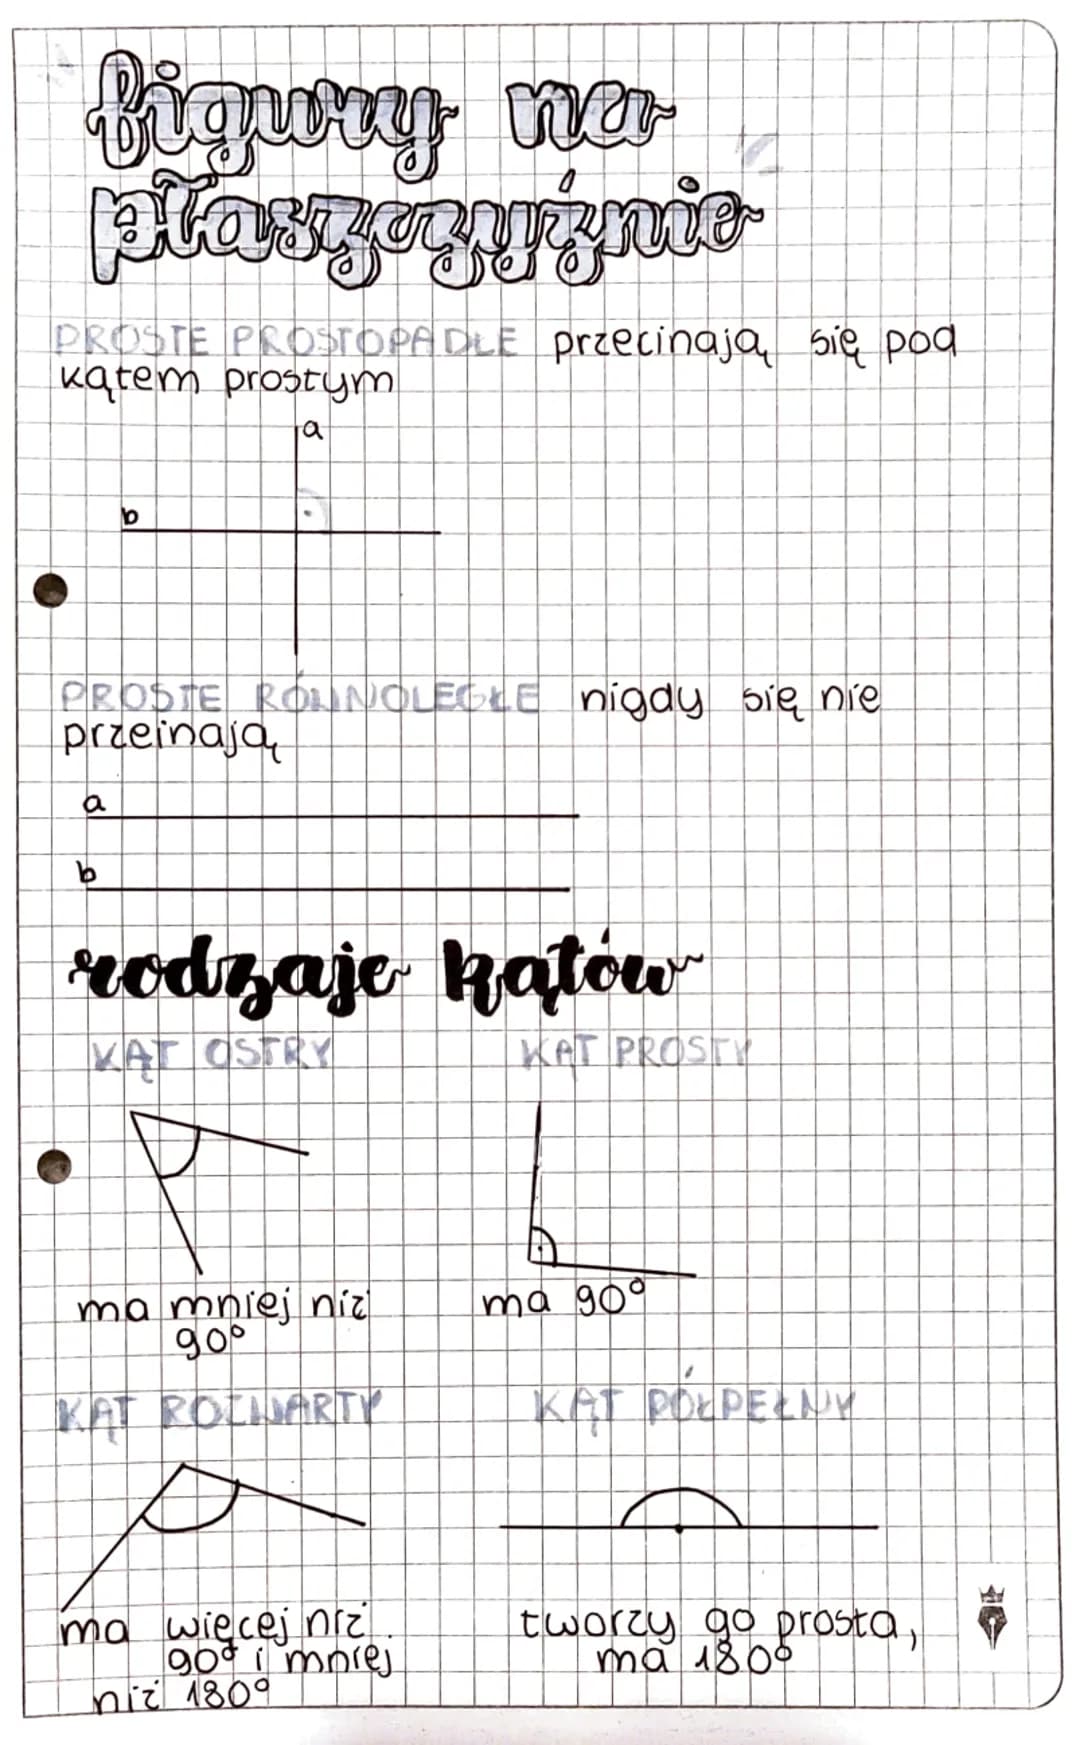 figury na
płaszczyźnie
PROSTE PROSTOPADŁE przecinają się pod
kątem prostym
a
b
PROSTE RÓWNOLEGŁE nigdy się nie
przeinają
a
b
rodzaje kątów
KĄT OSTRY KĄT PROSTY
ma mniej niż ma 90°
90°
KĄT ROZWARTY KĄT PÓŁPEŁNY
ma więcej niż tworzy go prosta,
90° i mniej ma 180°
niż 180°